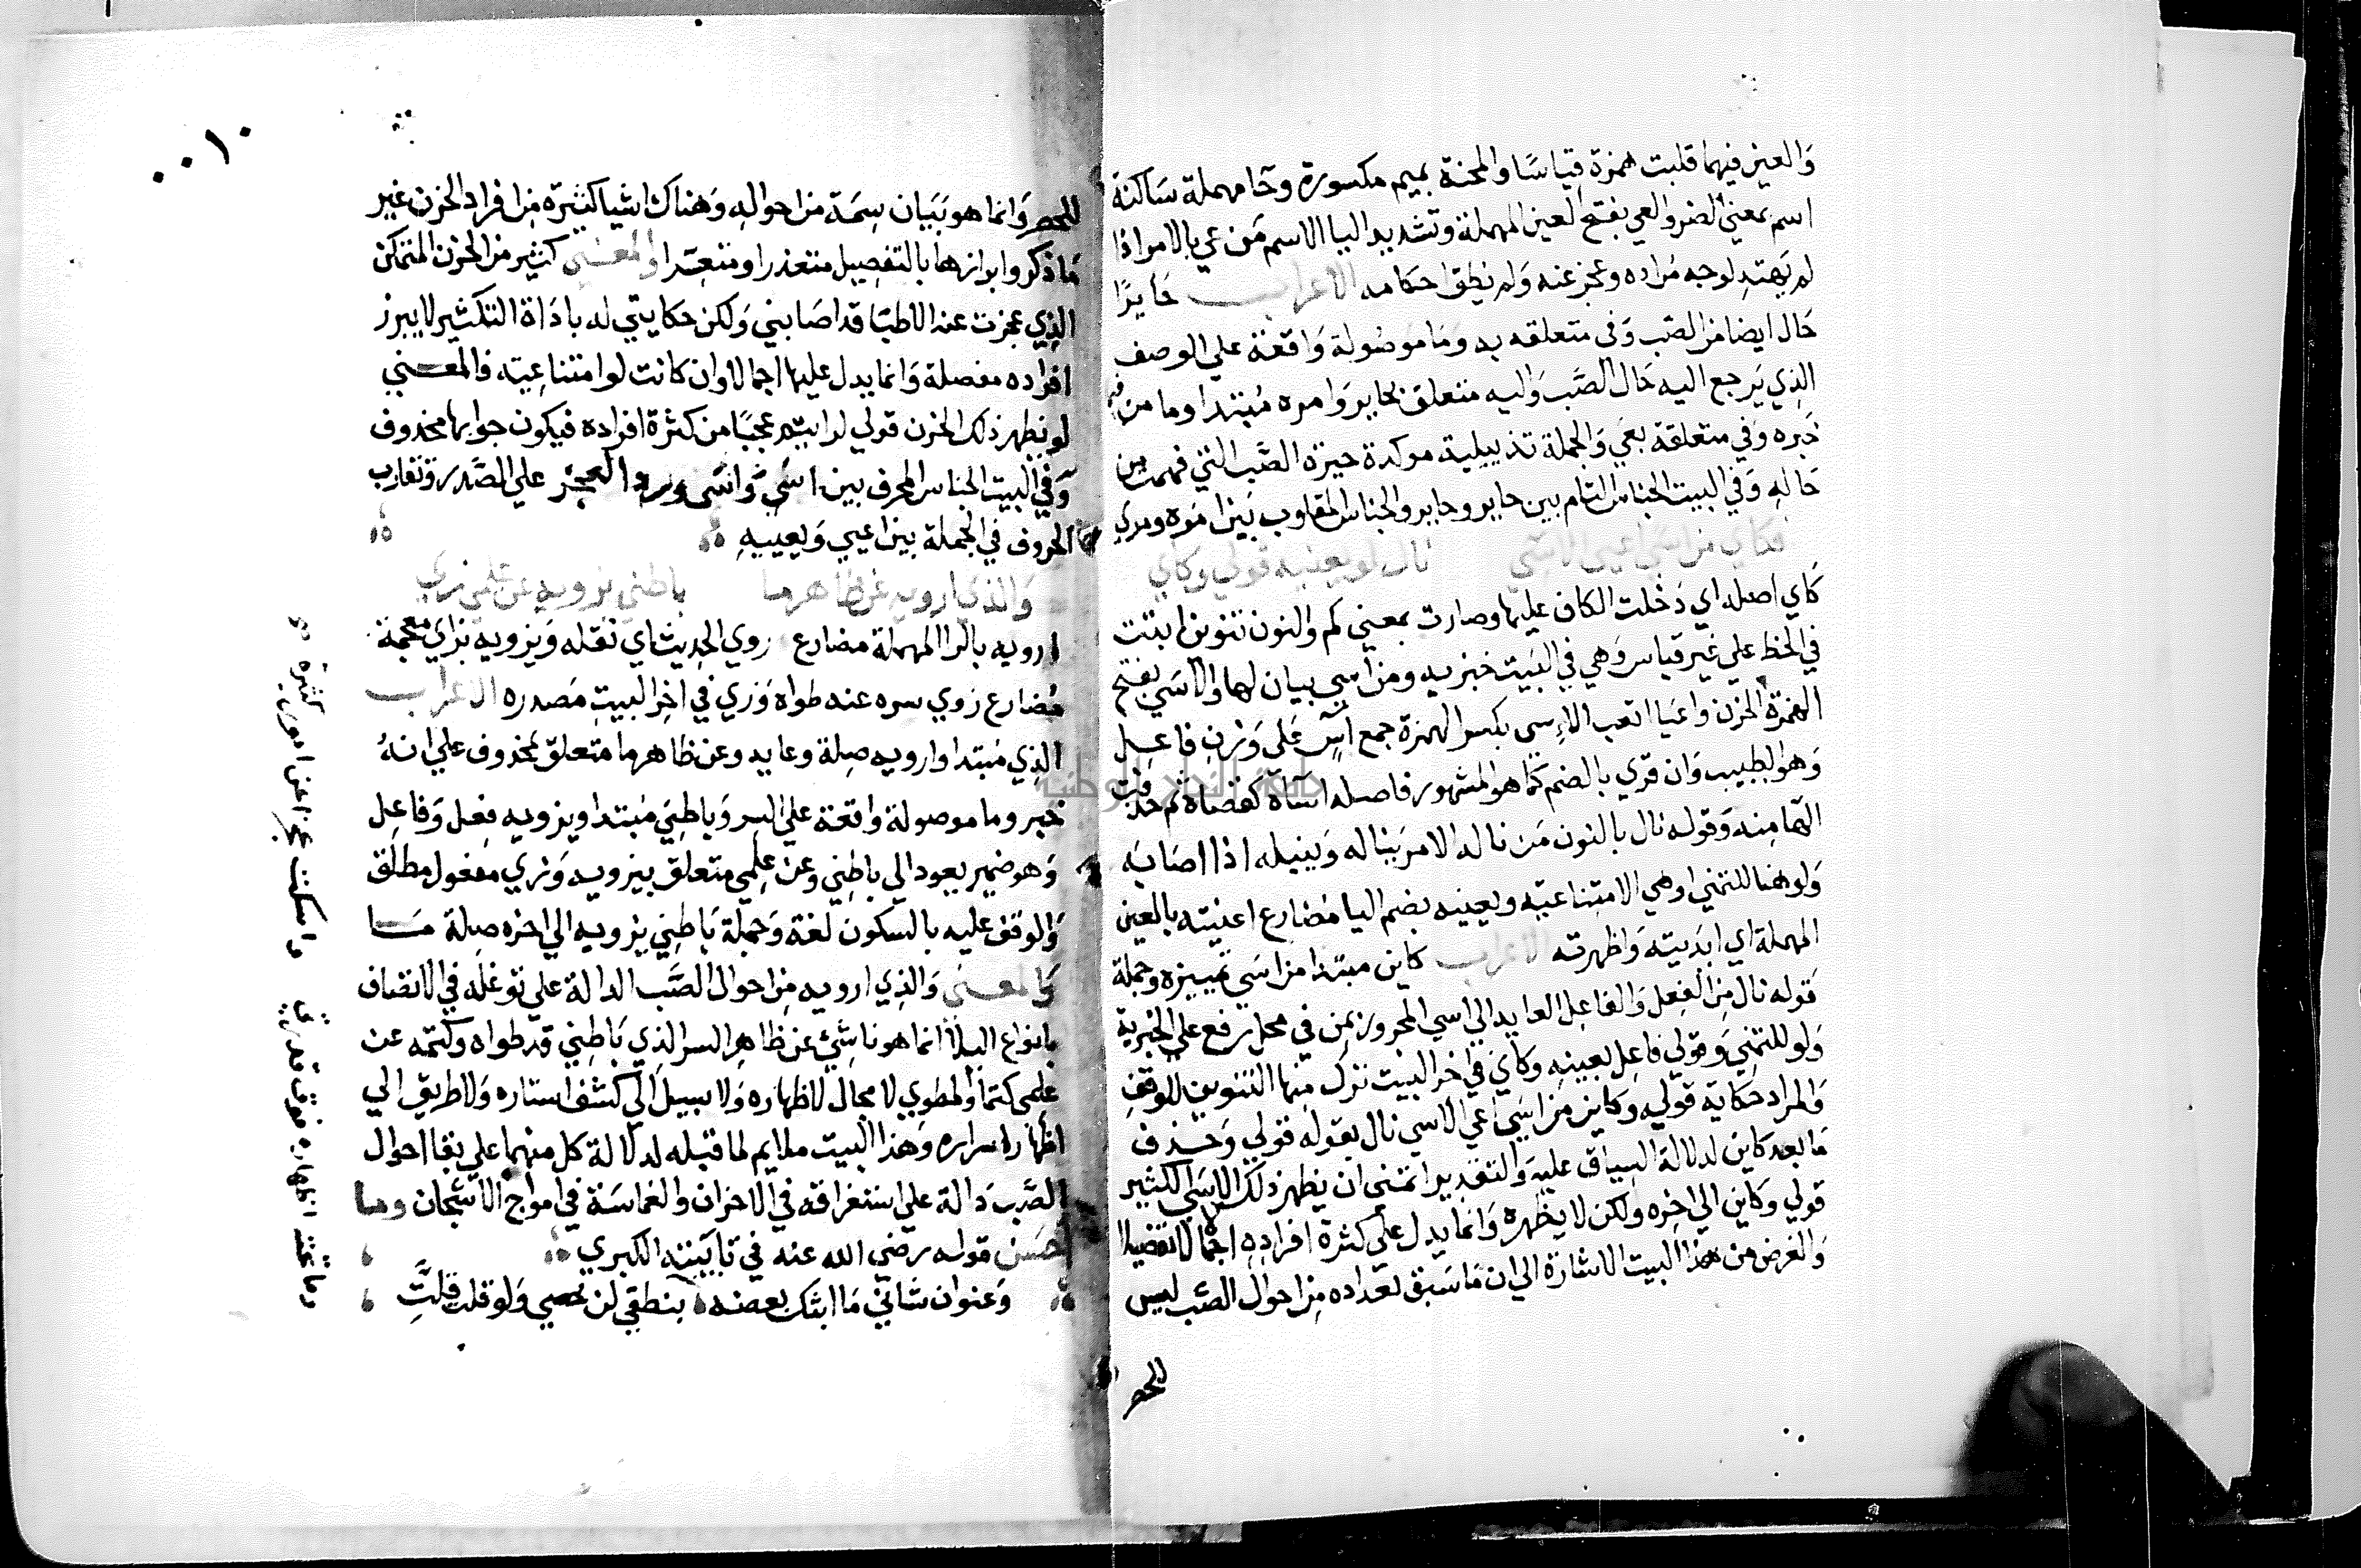 والعين فيهما قلبت همزة قياسًا والمحنة بميم مكسورة وحا مهملة ساكنة
اسم بمعني الضر والعي بفتح العين المهملة وتشديد اليا الاسم من عي بالامر اذا
لم يهتد لوجه مراده وعجز عنه ولم يطق احكامه الاعراب حايرًا
حال ايضا من الصب وفي متعلقه به وما موصولة واقعة علي الوصف
الذي يرجع اليه حال الصَّب واليه متعلق بحاير وامره مبتدا وما من
خبره وفي متعلقة بعي والجملة تذييلية موكدة حيزة الصَّب التي فهمت من
حاله وفي البيت الجناس التام بين حاير وحاير والجناس المقلوب بين امره ومري
فكاي من اسي اعيي الاسي نال لو يعنيه قولي وكاي
كاي اصله اي دخلت الكاف عليها وصارت بمعني كم والنون تنوين اثبتت
في الخط علي غير قياس وهي في البيت خبريه ومن اسي بيان لها والاسي بفتح
الهمزة الحزن واعيا اتعب الاِسي بكسر الهمزة جمع آسٍ علي وزن فاعل
وهو الطبيب وان قري بالضم كما هو المشهور فاصله اساة كقضاة ثم حذفت
الها منه وقوله نال بالنون من ناله الامر يناله وينيله اذا اصابه
ولو هنا للتمني او هي الامتناعيه ويعنيه بضم اليا مضارع اعنيته بالعين
المهملة اي ابديته واظهرته الاعراب كاين مبتدا من اسي تمييزه وجملة
قوله نال من الفعل والفاعل العايد الي اسي المجرور بمن في محل رفع علي الخبرية
ولو للتمني وقولي فاعل يعينه وكاي في اخر البيت ترك منها التنوين للوقف
والمراد حكاية قوليه وكاين من اسي اعي الاسي نال يقوله قولي وحذف
ما بعد كاين لدلالة السياق عليه والتقدير اتمني ان يظهر ذلك الاسي الكثير
قولي وكاين الي اخره ولكن لا يظهره وانما يدل علي كثرة افراده اجمالا لا تفصيلا
والغرض من هذا البيت الاشارة الي ان ما سبق تعداده من احوال الصَّب ليس
للحصر
٠٠١٠
للحصر وانما هو بيان سمة من احواله وهناك اشيا كثيرة من افراد الحزن غير
ما ذكر وابرازها بالتفصيل متعذر او متعسّر والمعني كثير من الحزن المتمكن
الذي عجزت عنه الاطبا قد اصابني ولكن حكايتي له باداة التكثير لا يبرز
افراده مفصلة وانما يدل عليها اجمالا وان كانت لو امتناعيه فالمعني
لو يظهر ذلك الحزن قولي لرايتم عجبًا من كثرة افراده فيكون جوابها محذوف
وفي البيت الجناس المحرف بين اسي واسي ورد العجز علي الصدر وتقارب
الحروف في الجملة بين اعيي ويعييه
والذي ارويه عن ظاهر ما باطني يزويه عن علمي زي
ارويه بالرا المهملة مضارع روي الحديث اي نقله ويزويه بزاي معجمة
مضارع زوي سره عنه طواه وزي في اخر البيت مصدره الاعراب
الذي مبتدا وارويه صلة وعايد وعن ظاهر ما متعلق بمحذوف علي انهُ
خبر وما موصولة واقعة علي السر وباطني مبتدا ويزويه فعل وفاعل
وهو ضمير يعود الي باطني وعن علمي متعلق بيزويه وزي مفعول مطلق
والوقف عليه بالسكون لغة وجملة باطني يزويه الي اخره صلة ما
والمعني والذي ارويه من احوال الصَّب الدالة علي توغله في الاتصاف
بانواع البلا انما هو ناشئ عن ظاهر السر الذي باطني قد طواه وكتمه عن
علمي كتما ولمطوي لا مجال لاظهاره ولا سبيل الي كشف استاره ولا طريق الي
اظهار اسراره وهذا البيت ملايم لما قبله لدلالة كل منهما علي بقا احوال
الصَّب دالة علي استغراقه في الاحزان وانغماسه في امواج الاشجان وما
احسن قوله رضي الله عنه في تاييته الكبري
وعنوان شاني ما ابثك بعضه بنطقي لن تحصي ولو قلت قلَّتِ
واسكت عجزا عن امور كثيرة